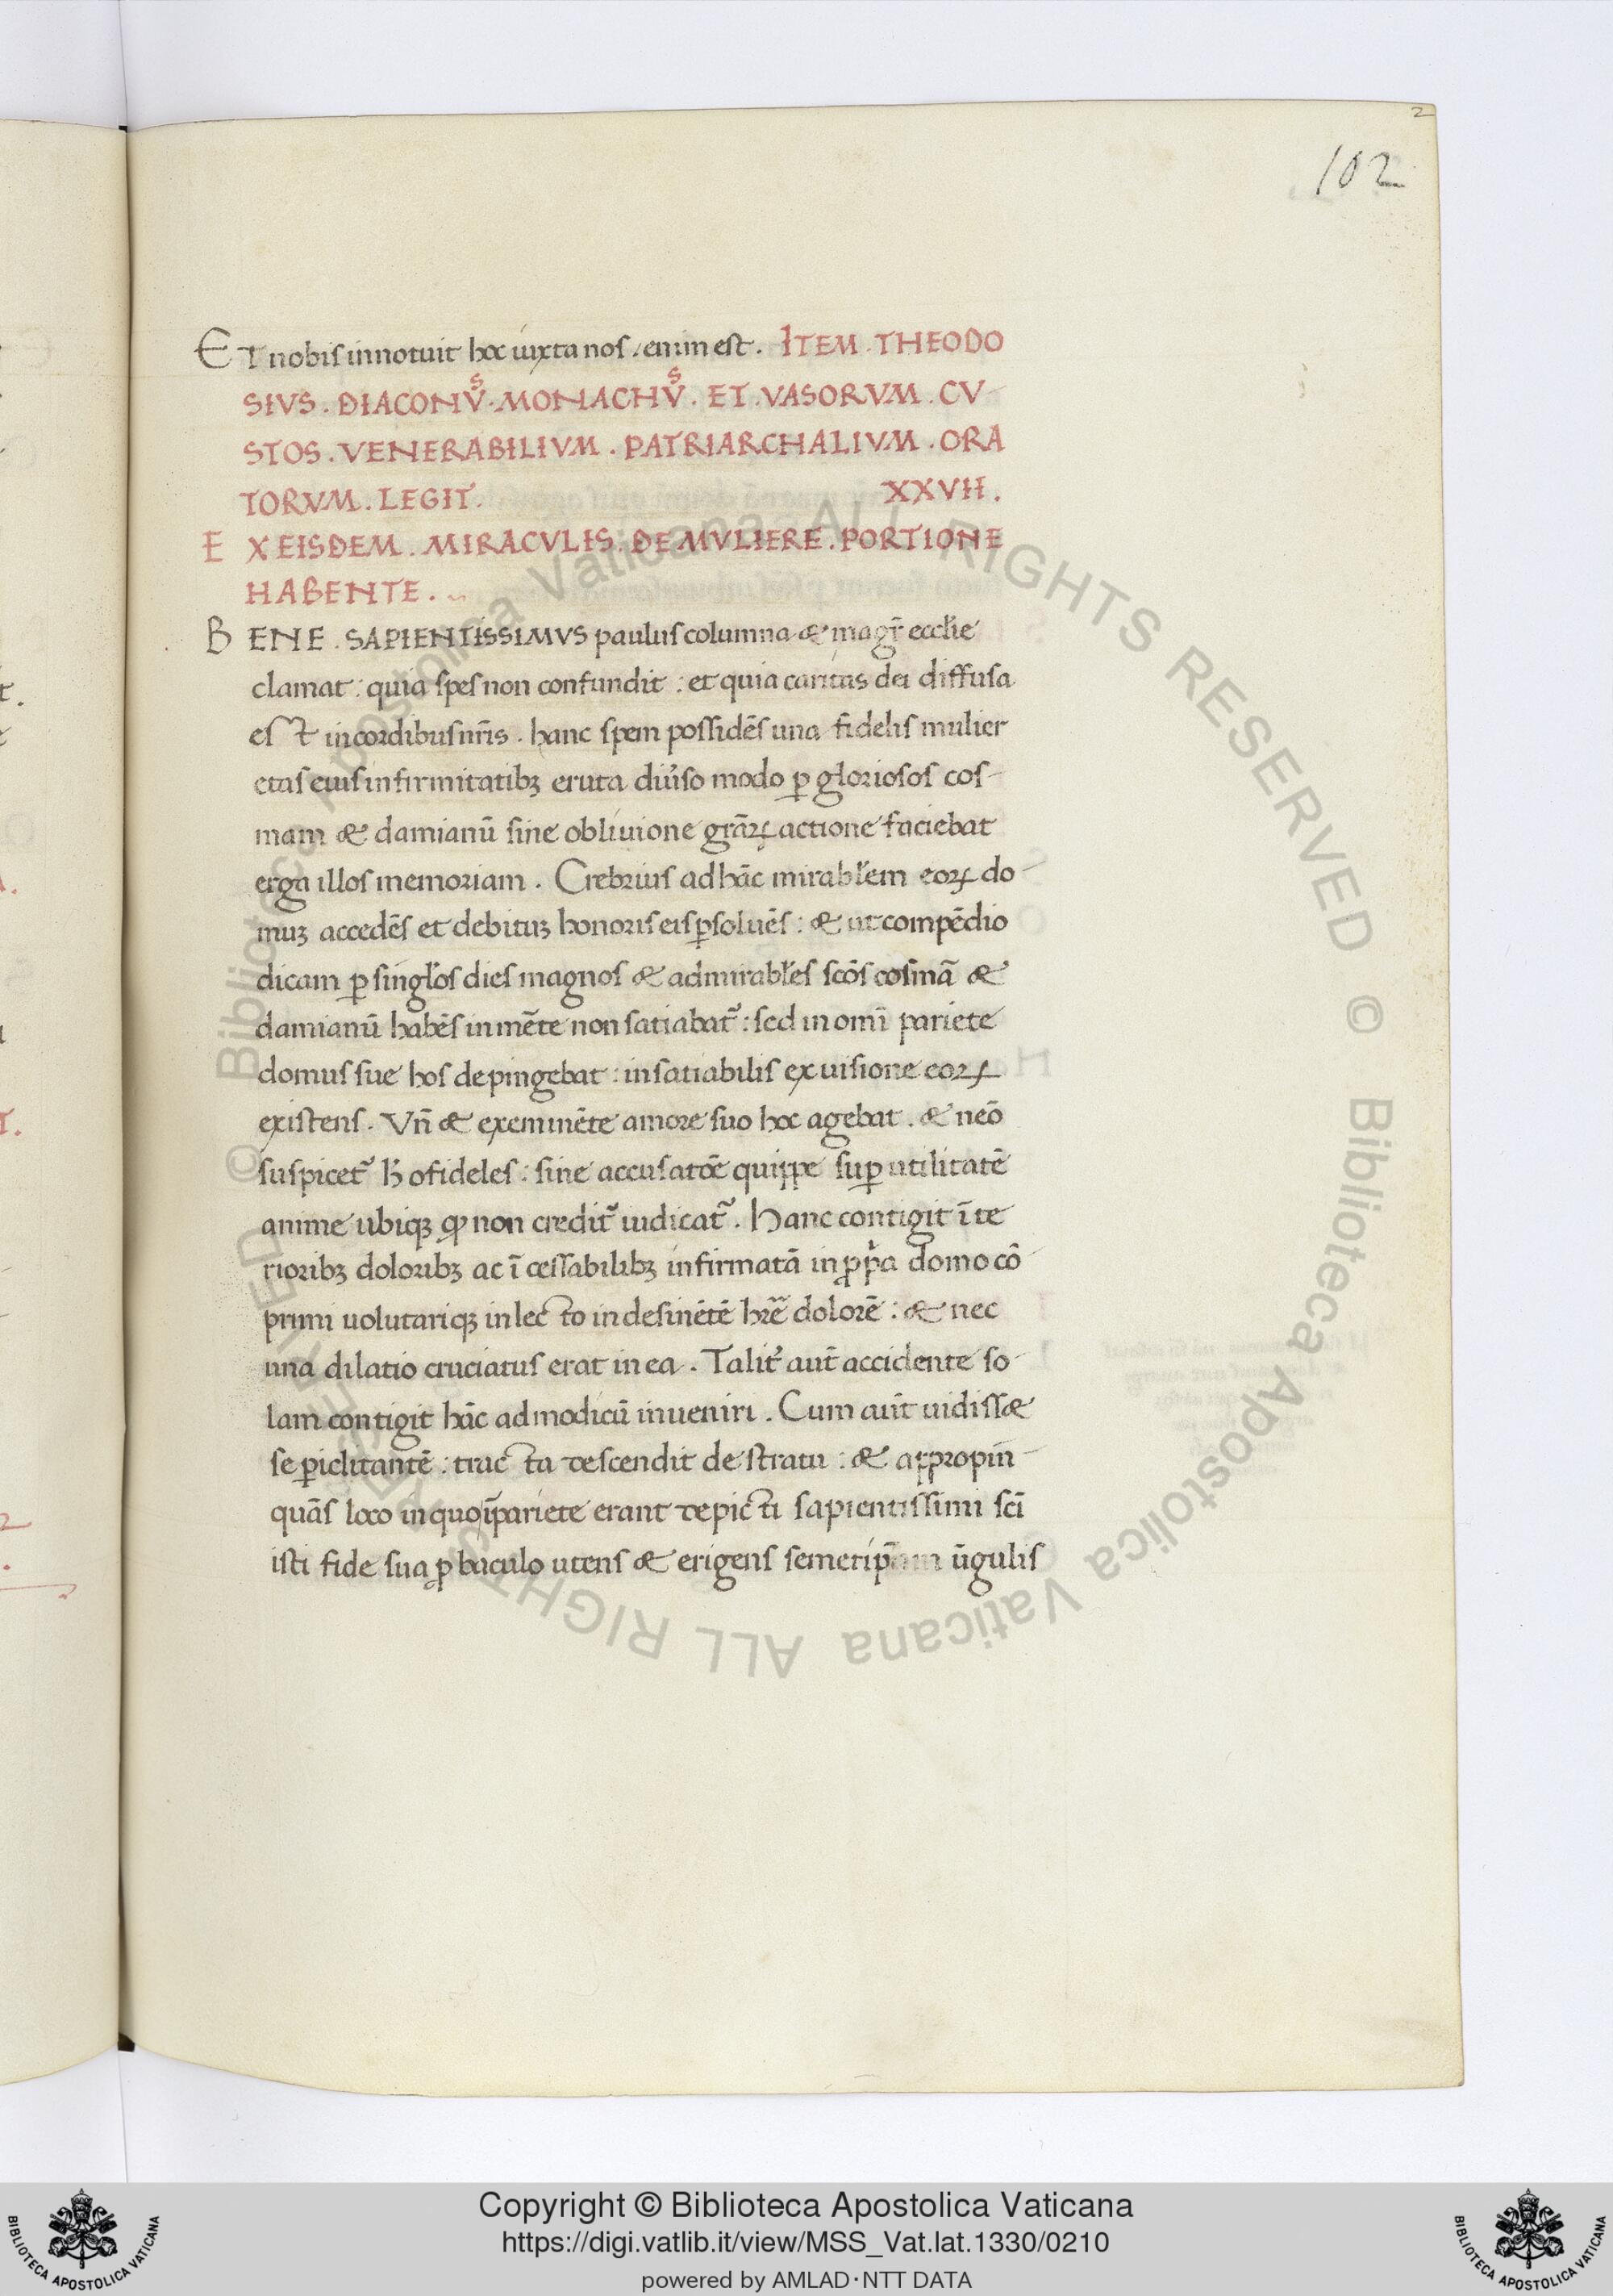 2
102
ET nobis innotuit hoc iuxta nos. enim est. ITEM THEODO
SIVS. DIACONVS. MONACHVS. ET. VASORVM. CV-
STOS. VENERABILIVM. PATRIARCHALIVM. ORA
TORVM. LEGIT. XXVII.
EX EISDEM. MIRACVLIS. DE MVLIERE. PORTIONE
HABENTE.
BENE. SAPIENTISSIMVS paulus columna & magr̄ eccłie
clamat: quia spes non confundit: et quia caritas dei diffusa
est in cordibus nr̄is. hanc spem possidēs una fidelis mulier
etas eius infirmitatibꝫ eruta diu̓so modo ꝑ gloriosos cos-
mam & damianū sine obliuione grāꝝ actione faciebat
erga illos memoriam. Crebrius ad hāc mirabłem eoꝝ do-
muꝫ accedēs et debituꝫ honoris eis ꝑsoluēs: & ut compēdio
dicam ꝑ singłos dies magnos & admirabłes scōs cosmā &
damianū habēs in mēte non satiabat᷑: sed in omī pariete
domus sue hos depingebat: insatiabilis ex uisione eoꝝ
existens. Vñ & exeminēte amore suo hoc agebat. & neō
suspicet᷑ h̓ o fideles: sine accusatōe quippe suꝑ utilitatē
anime ubiqꝫ ꝙ non credit᷑ iudicat᷑. Hanc contigit īte
rioribꝫ doloribꝫ ac īcessabilibꝫ infirmatā in ꝓpͥa domo cō-
primi uolutariqꝫ in lecto indesinētē hr̄e dolorē: & nec
una dilatio cruciatus erat in ea. Talit᷑ aut̄ accidente so-
lam contigit hāc ad modicū inueniri. Cum aut̄ uidiss&
se ꝑiclitantē: tracta descendit de stratu: & appropin-
quās loco in quo ī pariete erant depicti sapientissimi scī
isti fide sua ꝓ baculo utens & erigens semetip̄am ūgulis
Copyright © Biblioteca Apostolica Vaticana
https://digi.vatlib.it/view/MSS_Vat.lat.1330/0210
powered by AMLAD·NTT DATA
BIBLIOTECA APOSTOLICA VATICANA
BIBLIOTECA APOSTOLICA VATICANA
© Biblioteca Apostolica Vaticana ALL RIGHTS RESERVED © Biblioteca Apostolica Vaticana ALL RIGHTS RESERVED